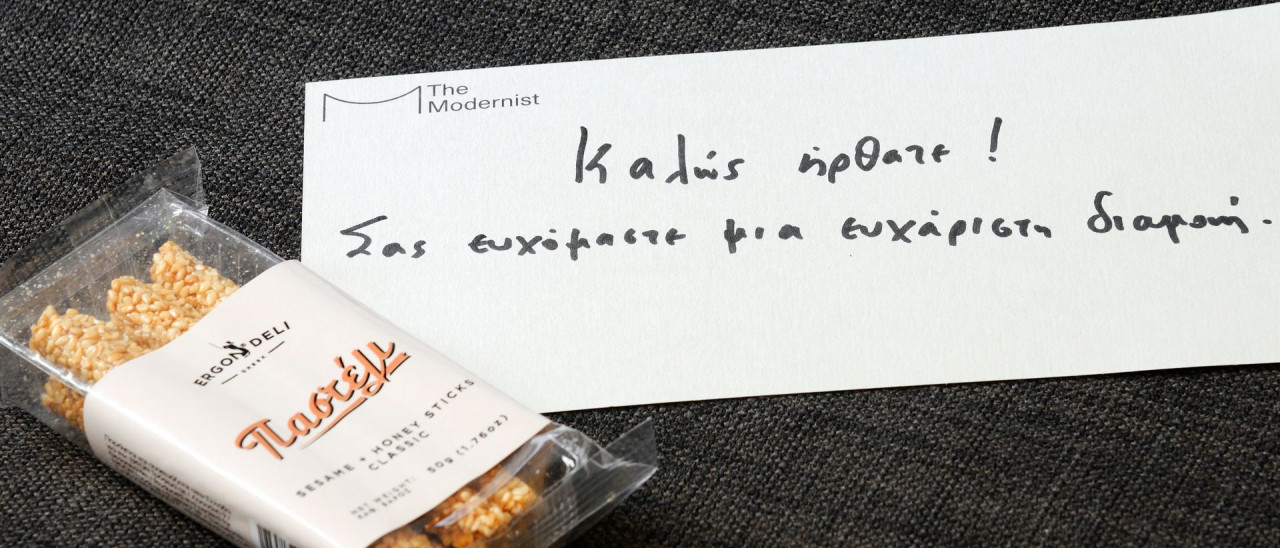 The
Modernist
Καλώς ήρθατε!
Σας ευχόμαστε μια ευχάριστη διαμονή.
ERGON DELI
Παστέλι
SESAME + HONEY STICKS
CLASSIC
NET WEIGHT: 50g (1.76oz)
ΚΑΘ. ΒΑΡΟΣ